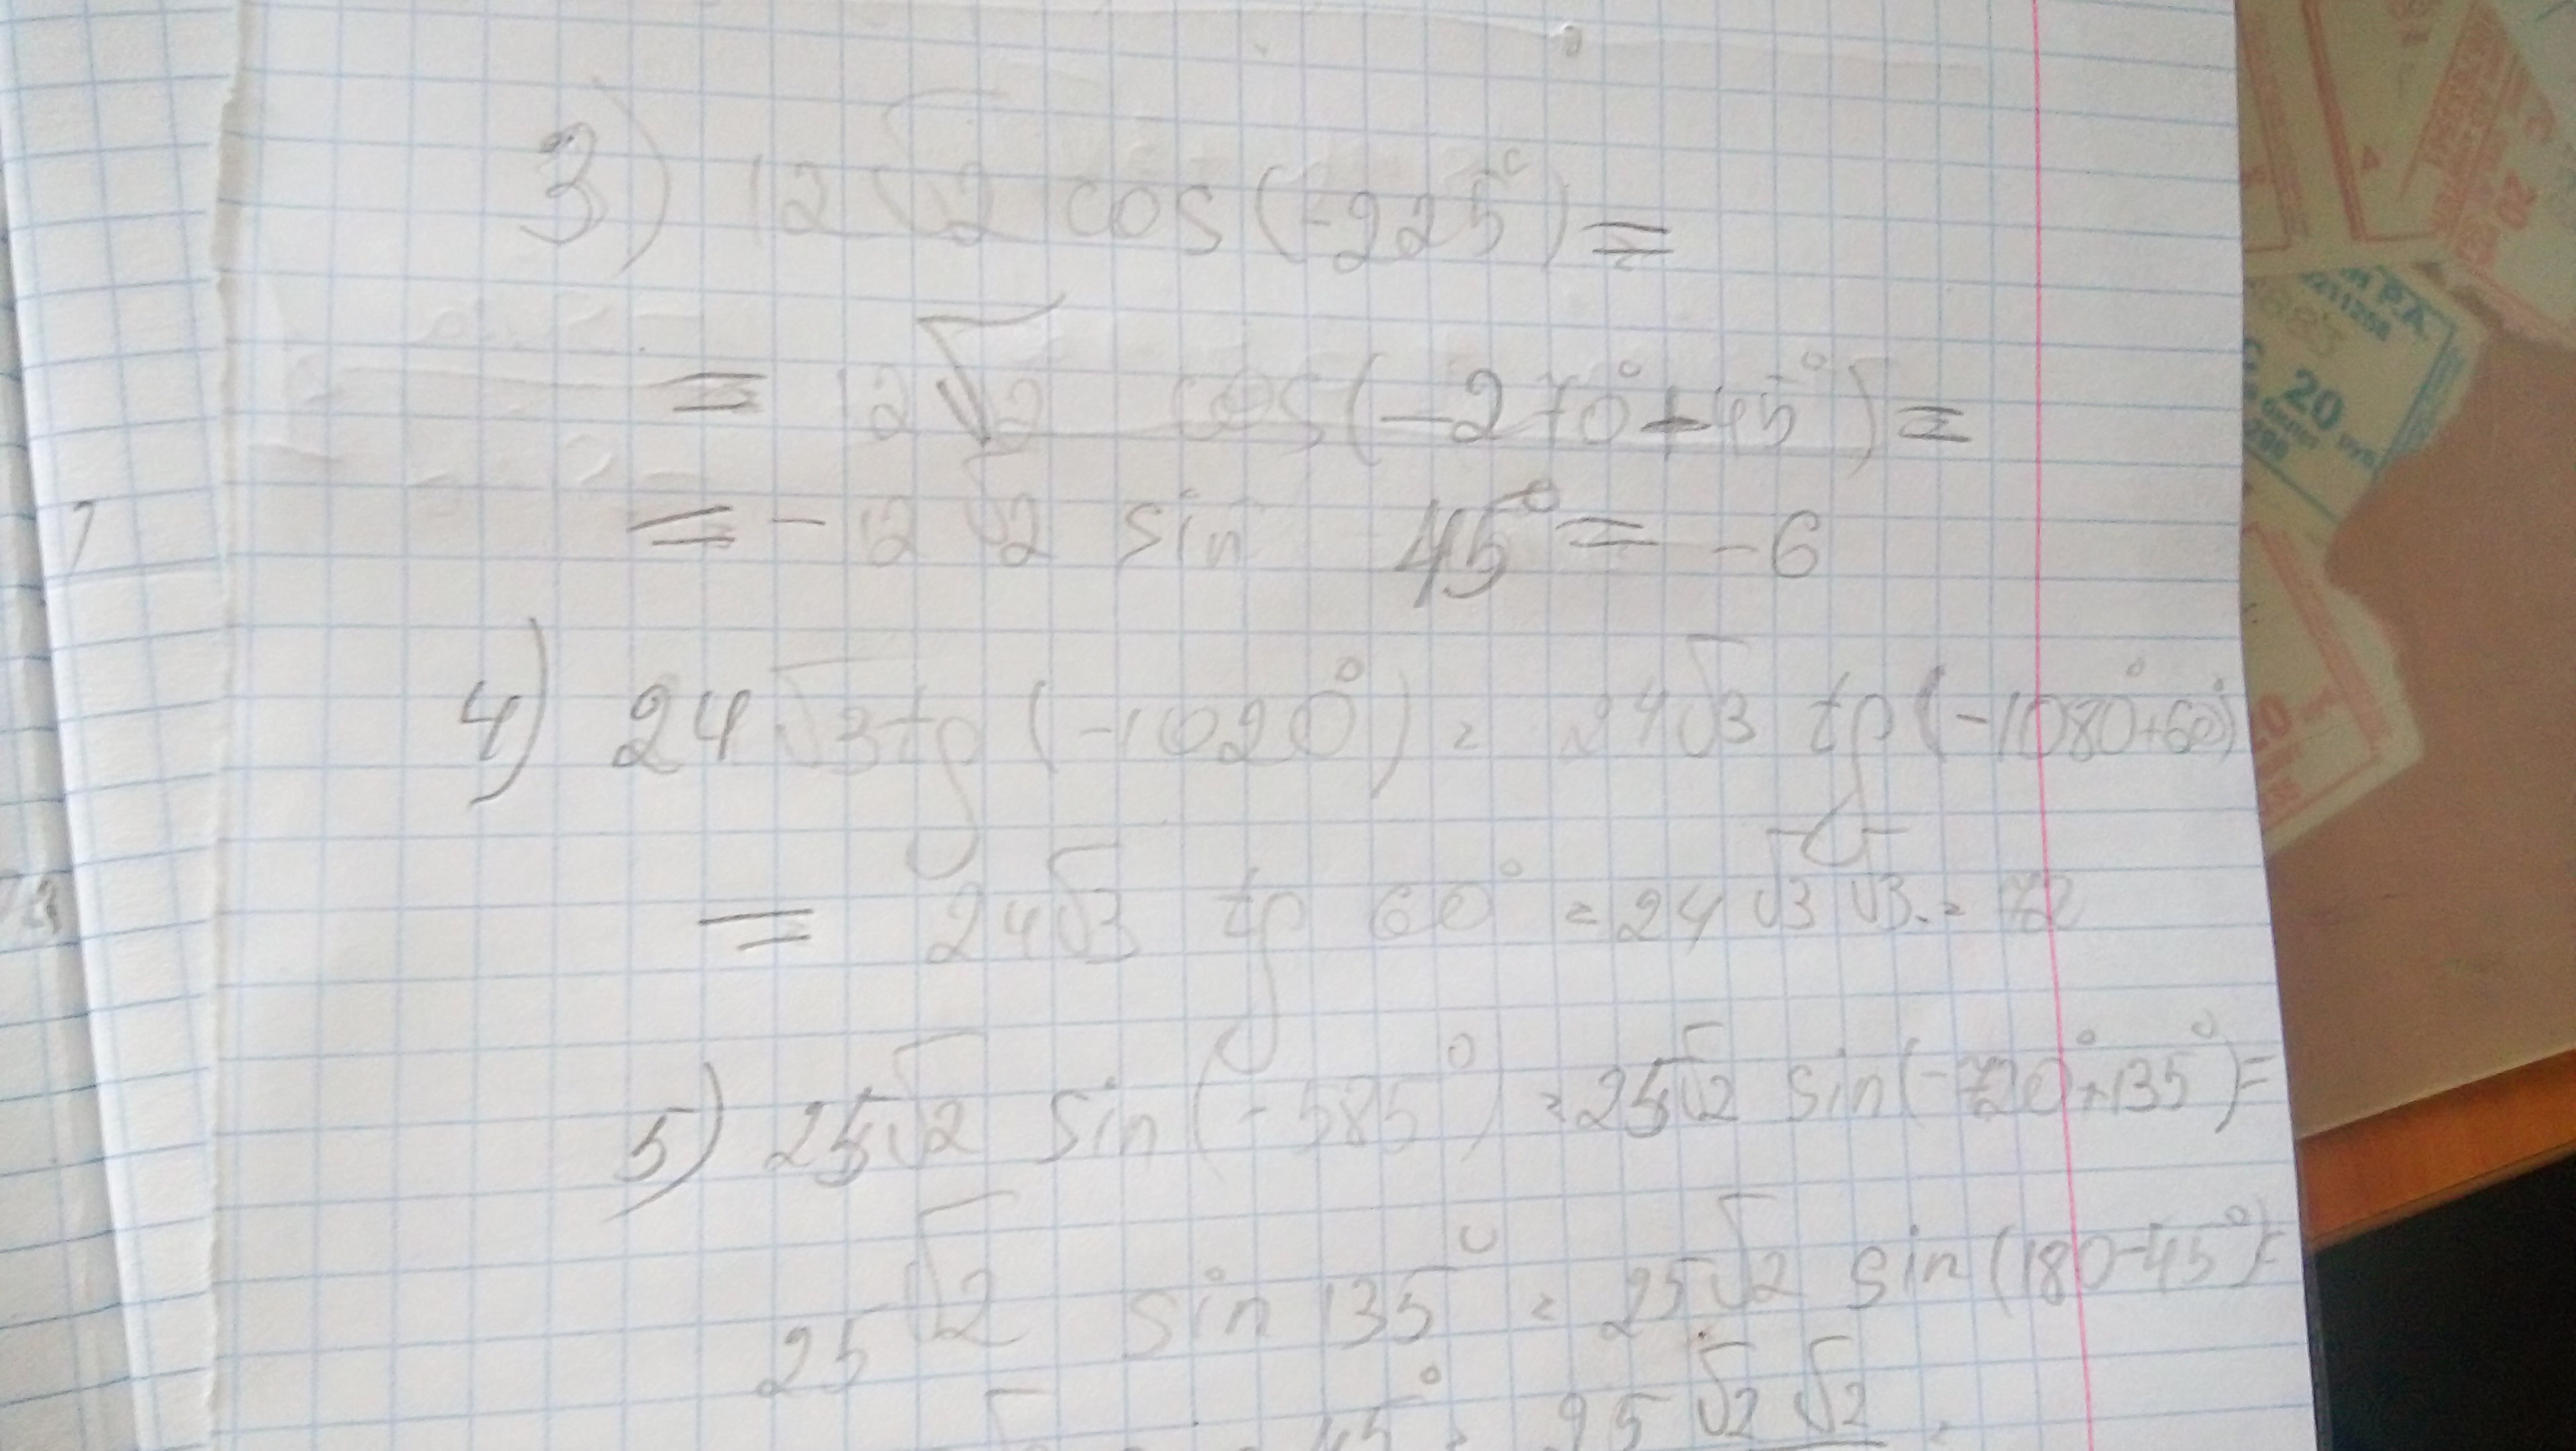 3) 12√2 cos(-225°) =
= 12√2 cos(-270°+45°) =
= -12√2 sin 45° = -6
4) 24√3 tg(-1020°) = 24√3 tg(-1080°+60°)
= 24√3 tg 60° = 24√3 √3. = 72
5) 25√2 sin(-585°) = 25√2 sin(-720°+135°) =
25√2 sin 135° = 25√2 sin(180-45°) =
45° = 25 √2 √2
20